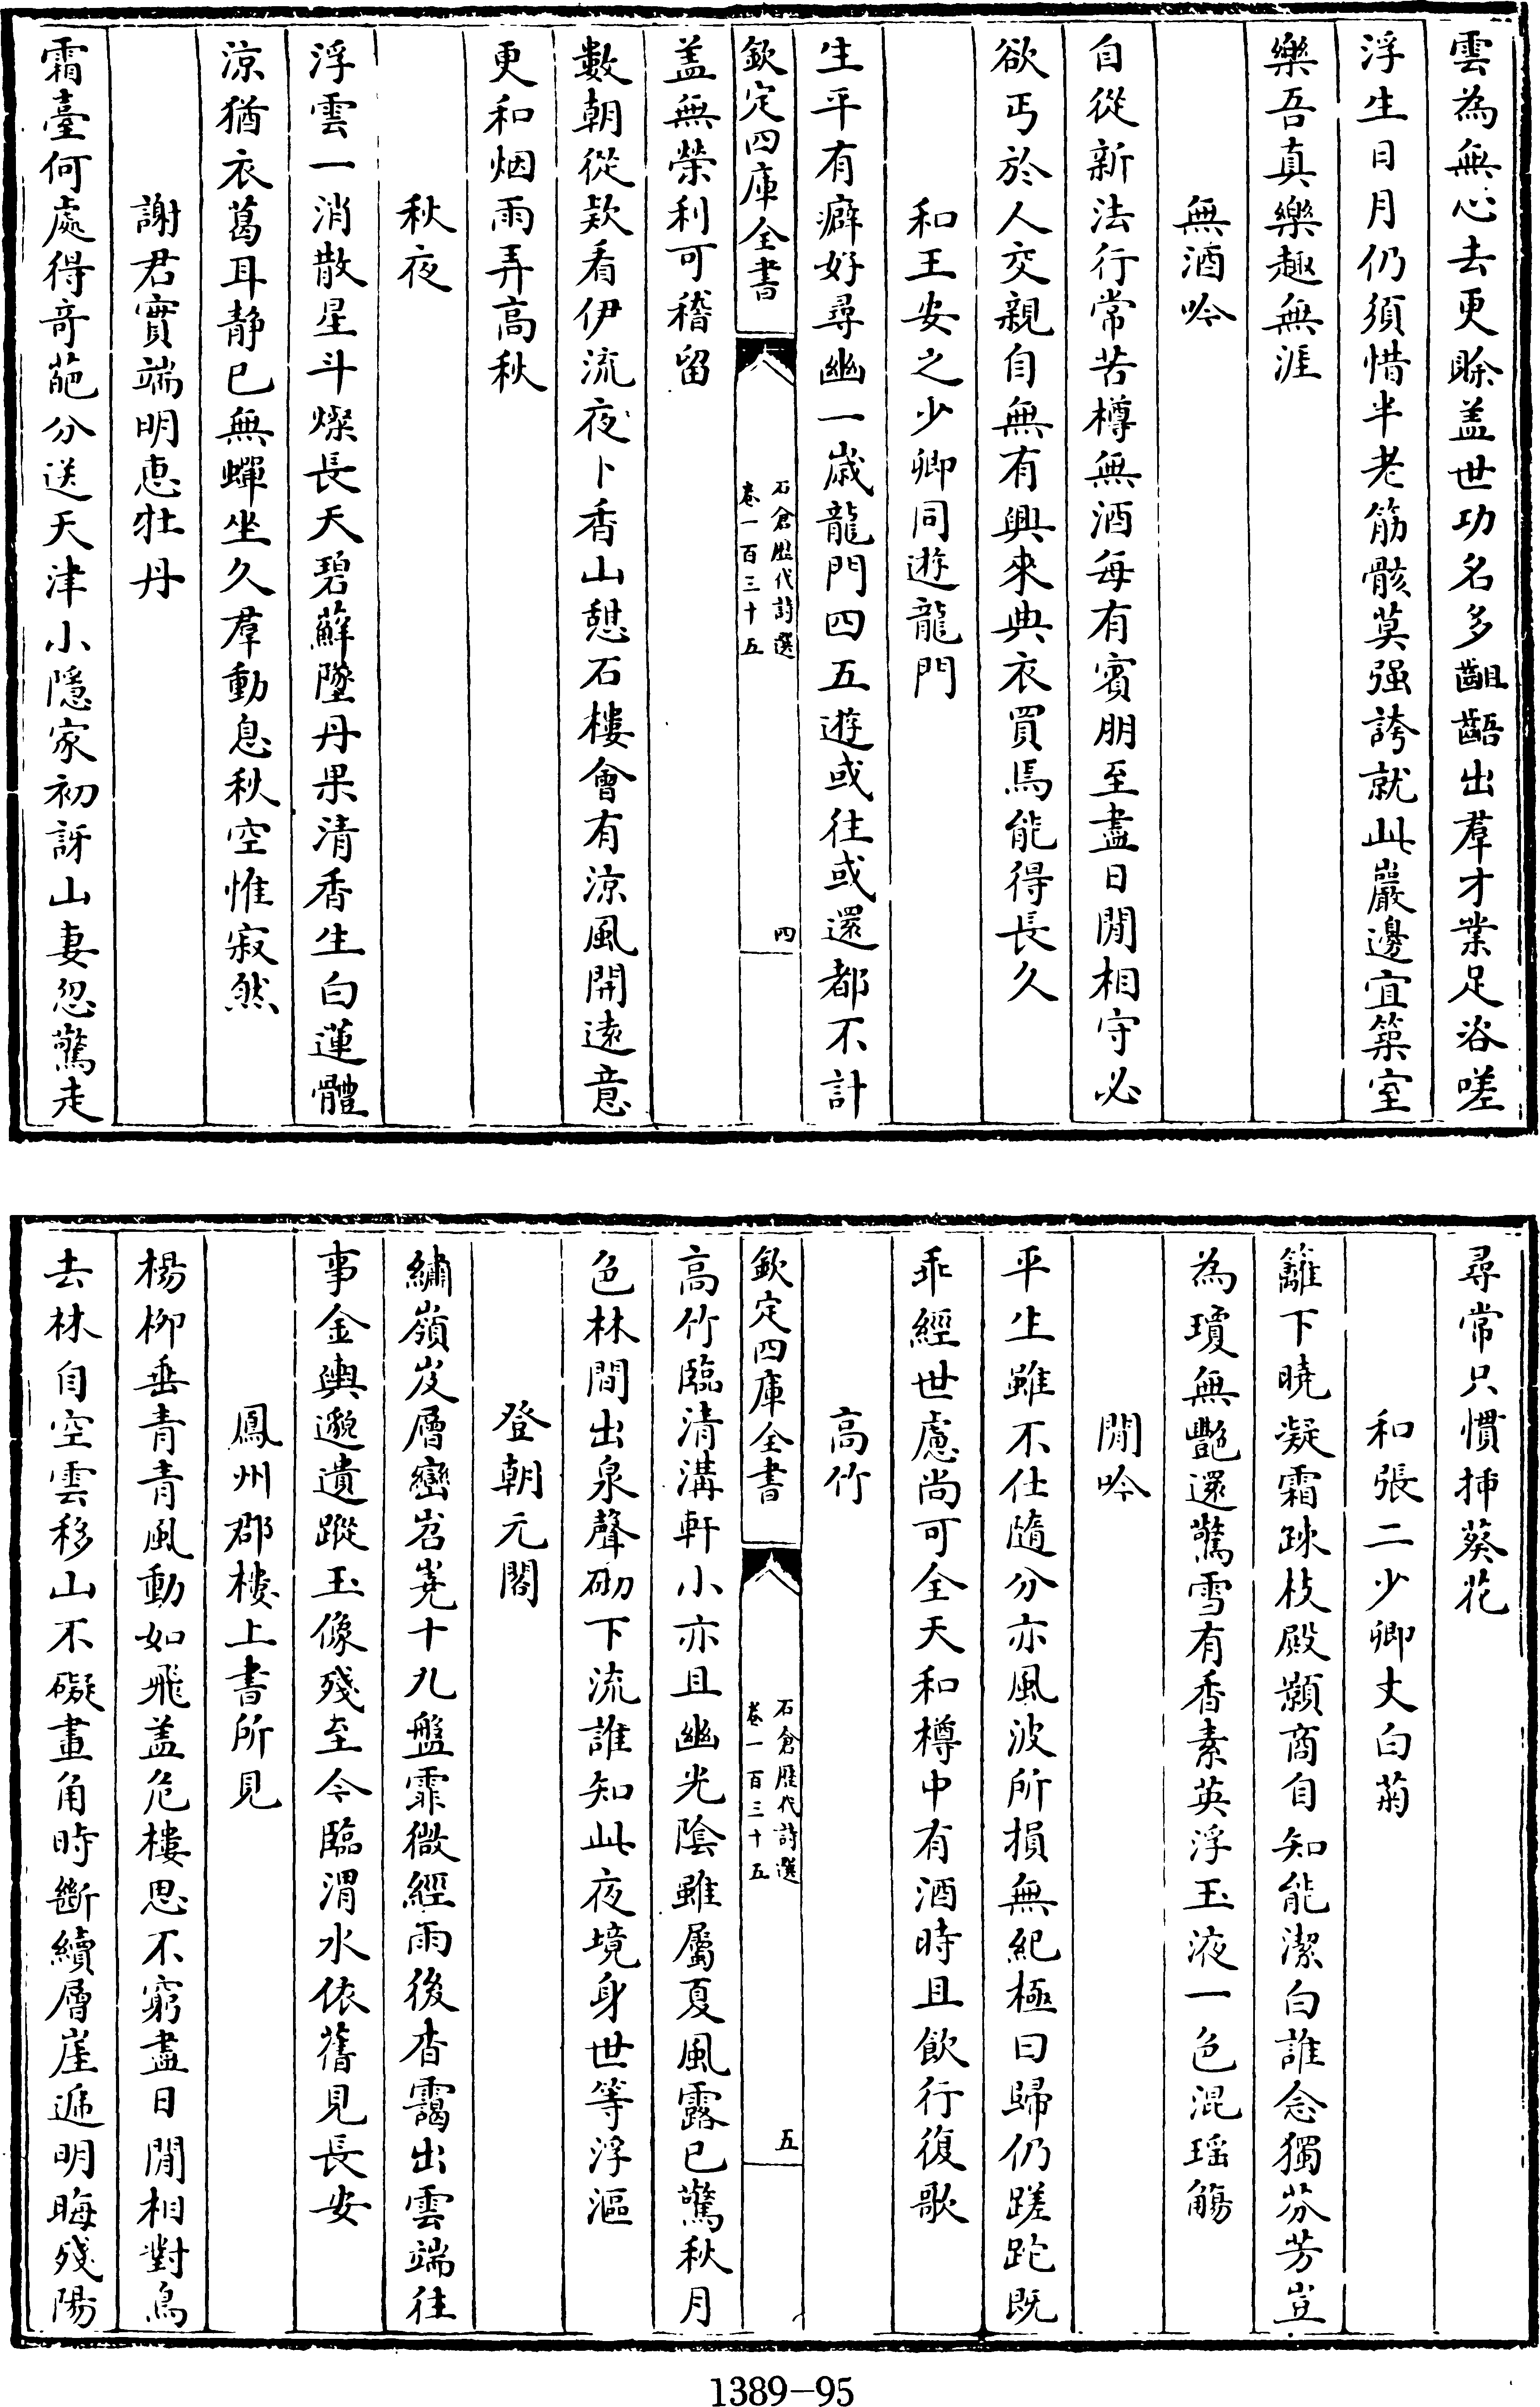 雲為無心去更賖盖世功名多齟齬出羣才業足咨嗟
浮生日月仍須惜半老筋骸莫强誇就此巖邊宜築室
樂吾真樂趣無涯
無酒吟
自從新法行常苦樽無酒每有賓朋至盡日閒相守必
欲丐於人交親自無有興來典衣買焉能得長久
和王安之少卿同遊龍門
生平有癖好尋幽一歳龍門四五遊或往或還都不計
欽定四庫全書
石倉歷代詩選
卷一百三十五
四
盖無榮利可稽留
數朝從欵看伊流夜卜香山憇石樓會有涼風開逺意
更和烟雨弄高秋
秋夜
浮雲一消散星斗燦長天碧蘚墮丹果清香生白蓮體
涼猶衣葛耳静已無蟬坐久羣動息秋空惟寂然
謝君實端明惠牡丹
霜臺何處得竒葩分送天津小隱家初訝山妻忽驚走
尋常只慣揷葵花
和張二少卿丈白菊
籬下曉凝霜踈枝殿顥商自知能潔白誰念獨芬芳豈
為瓊無艷還驚雪有香素英浮玉液一色混瑶觴
閒吟
平生雖不仕隨分亦風波所損無紀極曰歸仍蹉跎既
乖經世慮尚可全天和樽中有酒時且飲行復歌
高竹
欽定四庫全書
石倉歷代詩選
卷一百三十五
五
高竹臨清溝軒小亦且幽光陰雖屬夏風露已驚秋月
色林間出泉聲砌下流誰知此夜境身世等浮漚
登朝元閣
繡嶺岌層巒岧嶤十九盤霏微經雨後杳靄出雲端往
事金輿邈遺蹤玉像殘至今臨渭水依舊見長安
鳳州郡樓上書所見
楊柳垂青青風動如飛盖危樓思不窮盡日閒相對鳥
去林自空雲移山不礙畫角時斷續層崖遞明晦殘陽
1389-95